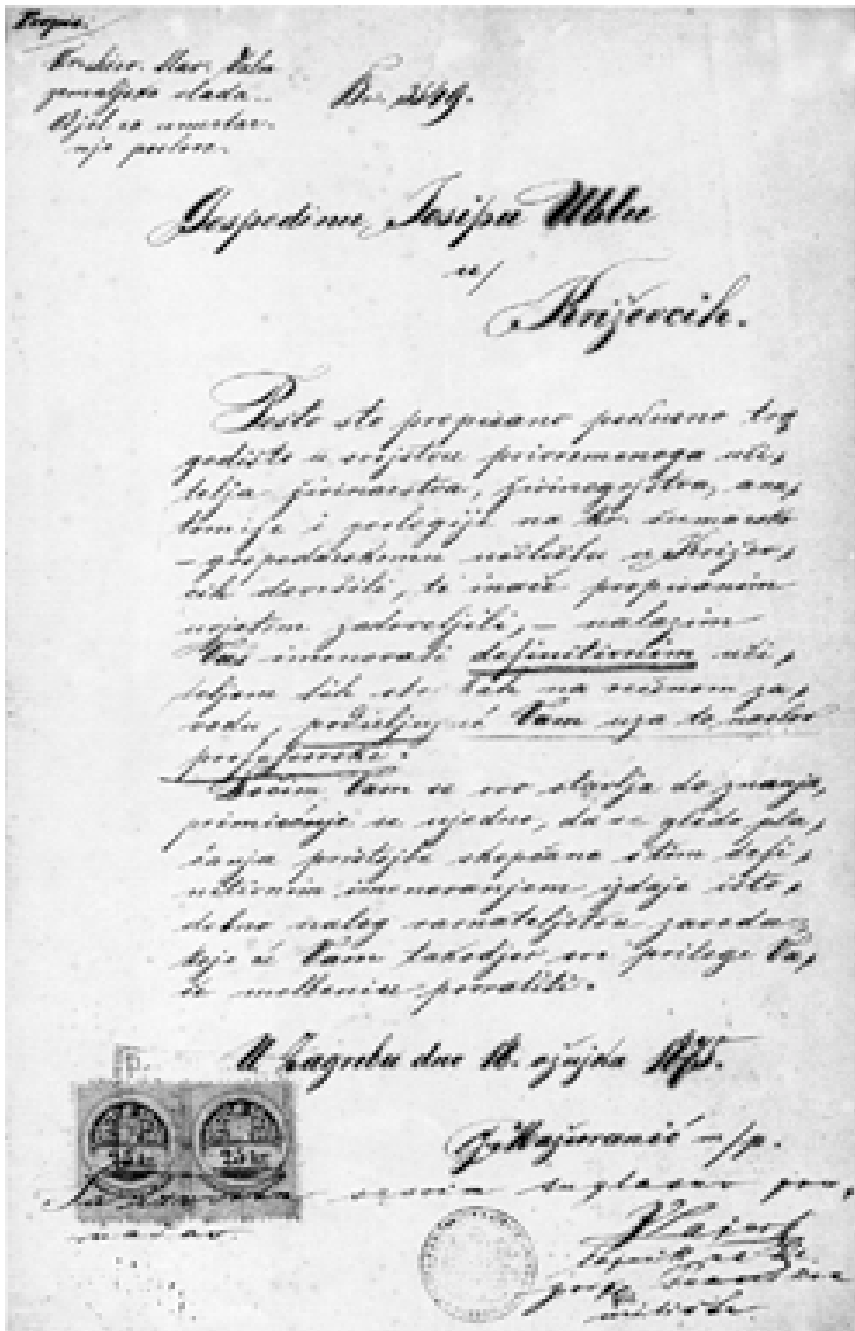 Prepis.
Kr. hrv. slav. dalm.
zemaljska vlada.
Odjel za unutar-
nje poslove.
Br.
Gospodinu Josipu Ublu
u/
Križevcih.
Pošto ste propisano pokusno trog
godište u svojstvu privremenoga uči,
telja živinarstva, živinogojstva, ana,
tomije i zoologije na kr. šumarsko
-gospodarskomu učilištu u Križev,
cih dovršili, te inače propisanim
uvjetom zadovoljili, - nalazim
Vas imenovati definitivnim uči,
teljem tih struka na rečenom za,
vodu, podieljujuć Vam uza to naslov
profesorski.
Vam se ovo stavlja do znanja,
primjećuje se ujedno, da se glede pla,
ćanja pristojbe skopčane s tim defi,
nitivnim imenovanjem izdaje isto,
dobno nalog ravnateljstvu zavoda
koje će Vam takodjer sve priloge Va,
še molbenice povratiti.
U Zagrebu dne ožujka
Mažuranić m/p.
25 kr. 25 kr.